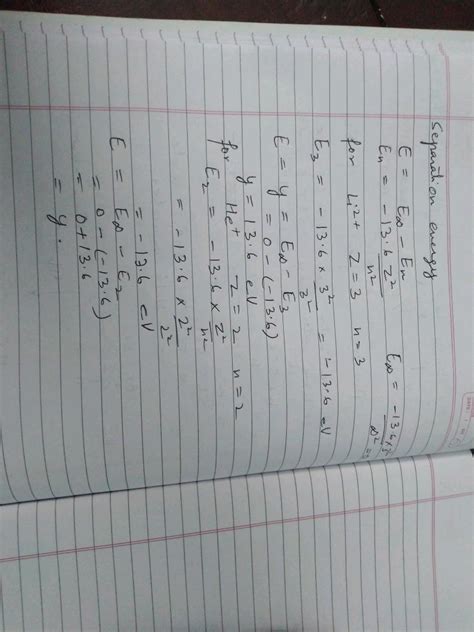 Separation energy
E = E∞ - En
En = -13.6 Z²/n²   E∞ = -13.6×3²/∞² =
for Li²⁺ Z=3 n=3
E₃ = -13.6 × 3²/3² = -13.6 eV
E = y = E∞ - E₃
= 0 - (-13.6)
y = 13.6 eV
for He⁺ Z=2 n=2
E₂ = -13.6 × Z²/n²
= -13.6 × 2²/2²
= -13.6 eV
E = E∞ - E₂
= 0 - (-13.6)
= 0 + 13.6
= y.